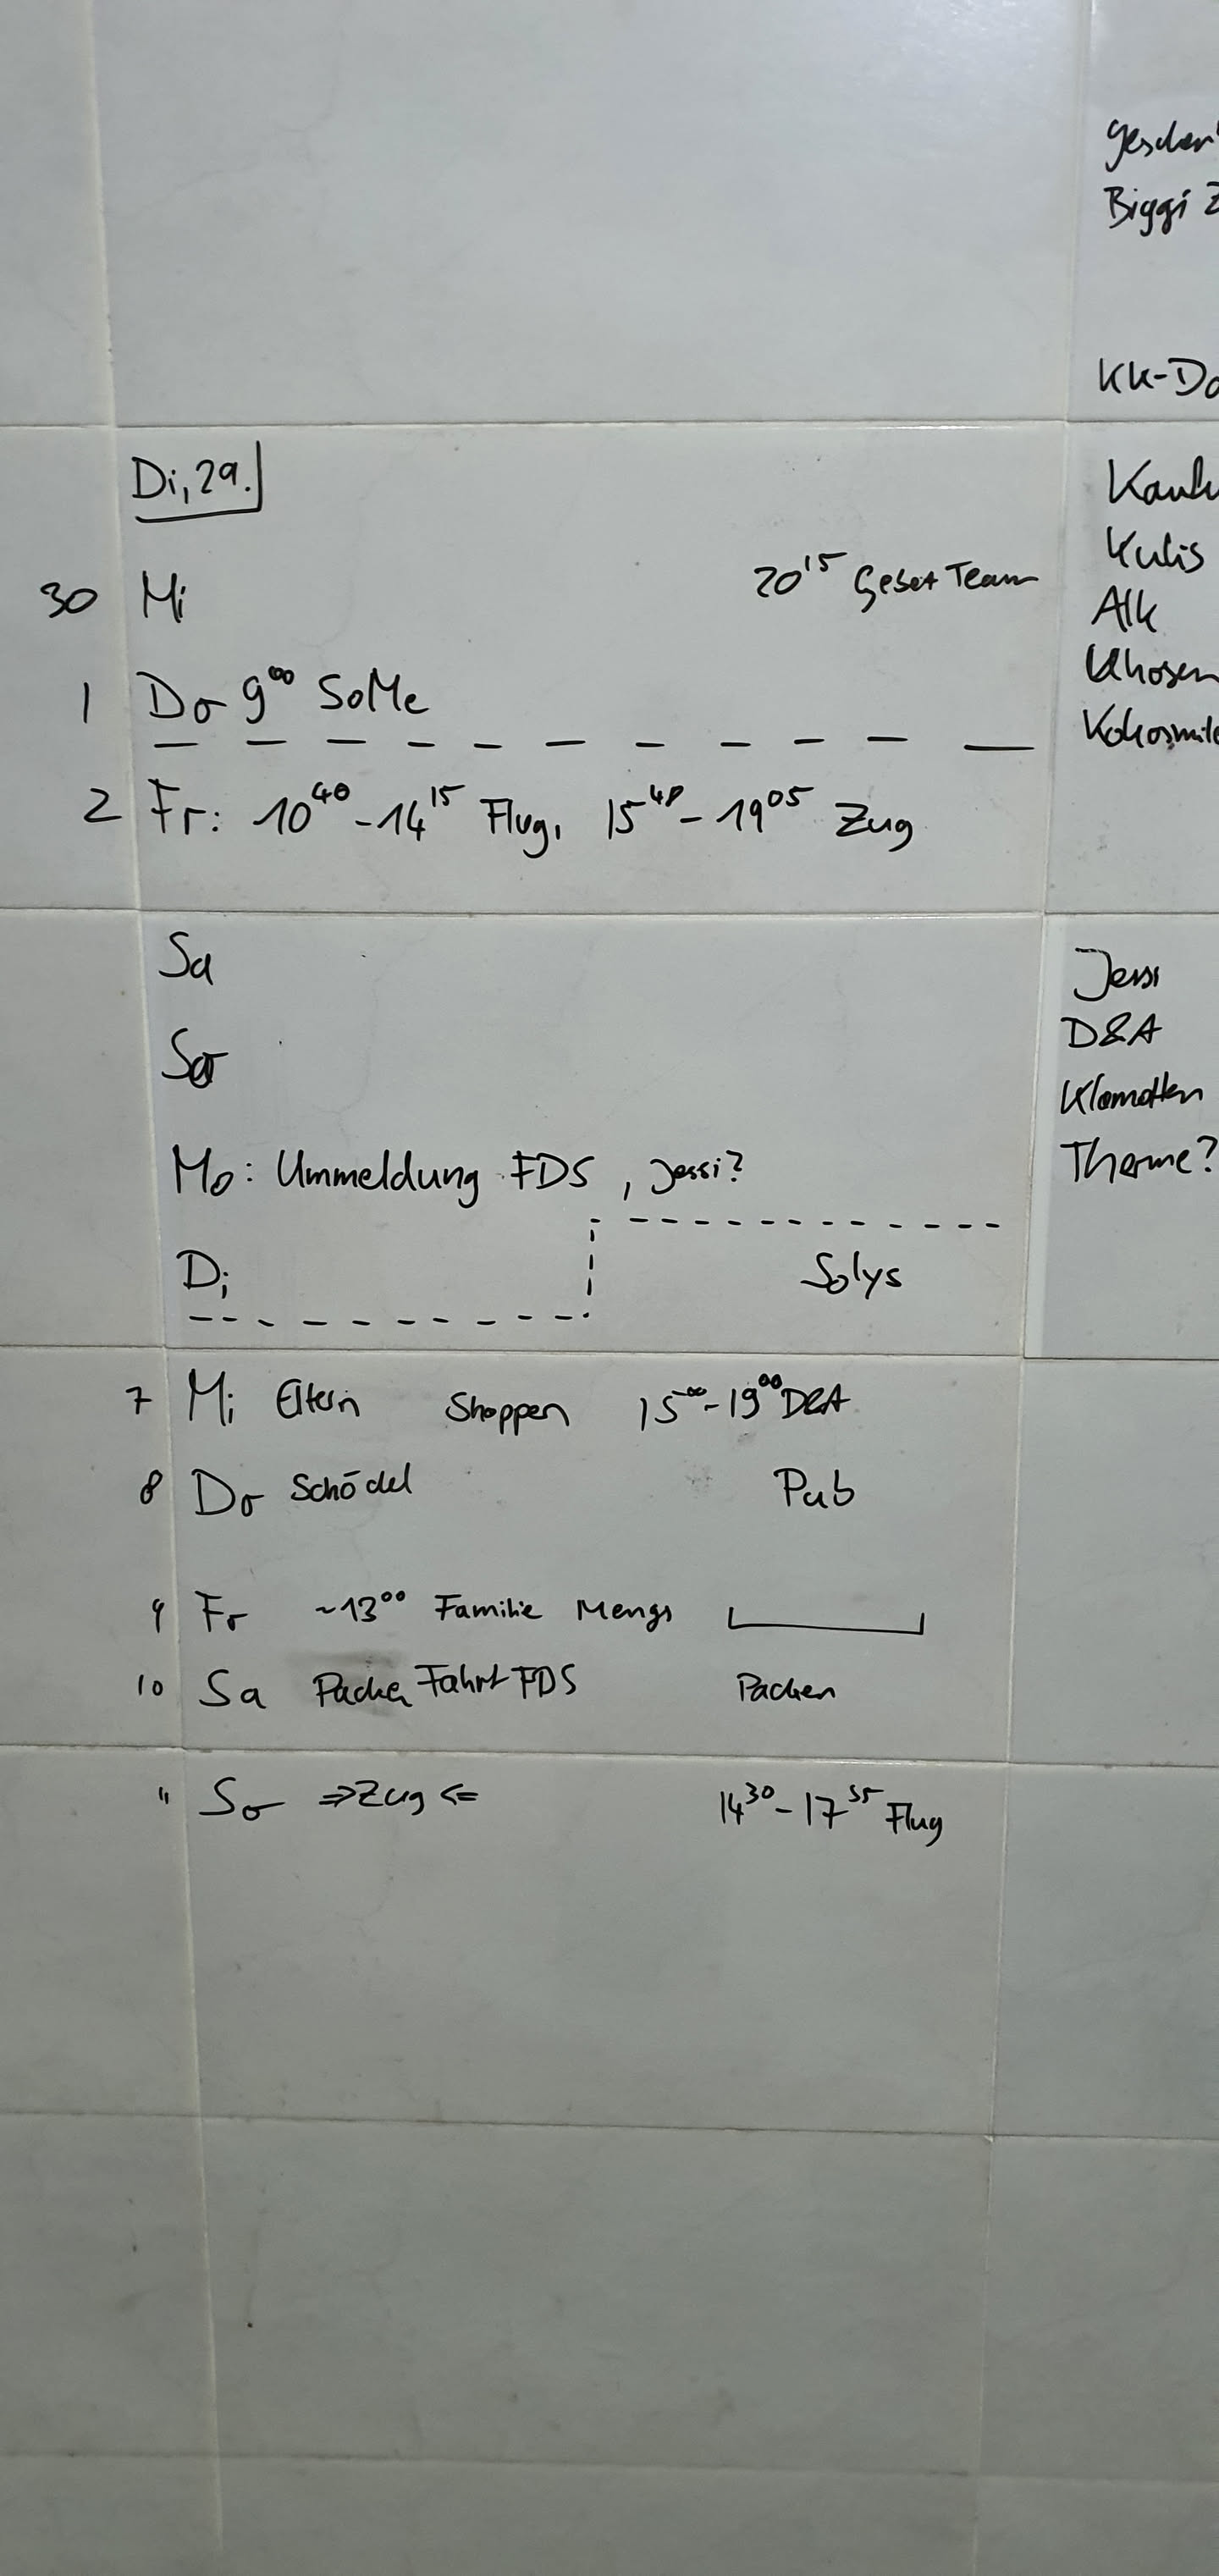 Di, 29.
30 Mi 20¹⁵ Gebet Team
1 Do 9⁰⁰ SoMe
2 Fr: 10⁴⁰ - 14¹⁵ Flug, 15⁴⁸ - 19⁰⁵ Zug
Sa
So
Mo: Ummeldung FDS, Jessi?
Di Solys
7 Mi Eltern Shoppen 15⁰⁰ - 19⁰⁰ D&A
8 Do Schödel Pub
9 Fr ~13⁰⁰ Familie Mengs
10 Sa Packen Fahrt FDS Packen
11 So ⇒ Zug ⇐ 14³⁰ - 17³⁵ Flug
Biggi
KK-Do
Kulis
Alk
Jessi
D&A
Klamotten
Therme?